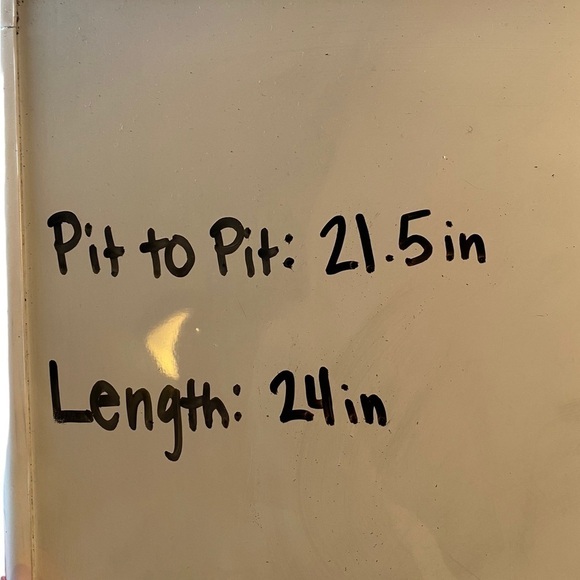 Pit to Pit: 21.5in
Length: 24in